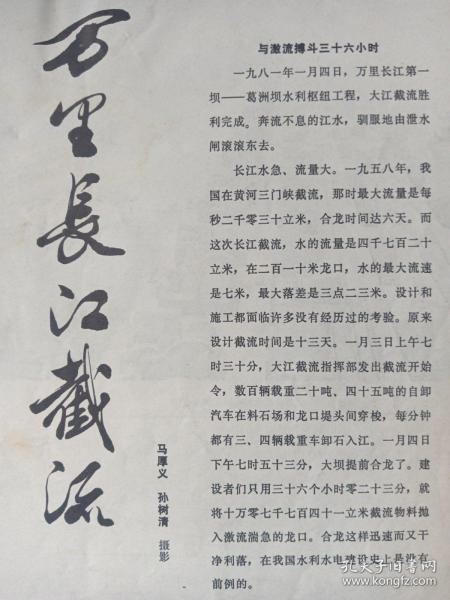 万里長江截流
马厚义 孙树清 摄影
与激流搏斗三十六小时
一九八一年一月四日，万里长江第一
坝——葛洲坝水利枢纽工程，大江截流胜
利完成。奔流不息的江水，驯服地由泄水
闸滚滚东去。
长江水急、流量大。一九五八年，我
国在黄河三门峡截流，那时最大流量是每
秒二千零三十立米，合龙时间达六天。而
这次长江截流，水的流量是四千七百二十
立米，在二百一十米龙口，水的最大流速
是七米，最大落差是三点二三米。设计和
施工都面临许多没有经历过的考验。原来
设计截流时间是十三天。一月三日上午七
时三十分，大江截流指挥部发出截流开始
令，数百辆载重二十吨、四十五吨的自卸
汽车在料石场和龙口堤头间穿梭，每分钟
都有三、四辆载重车卸石入江。一月四日
下午七时五十三分，大坝提前合龙了。建
设者们只用三十六个小时零二十三分，就
将十万零七千七百四十一立米截流物料抛
入激流湍急的龙口。合龙这样迅速而又干
净利落，在我国水利水电建设史上是没有
前例的。
孔夫子旧书网